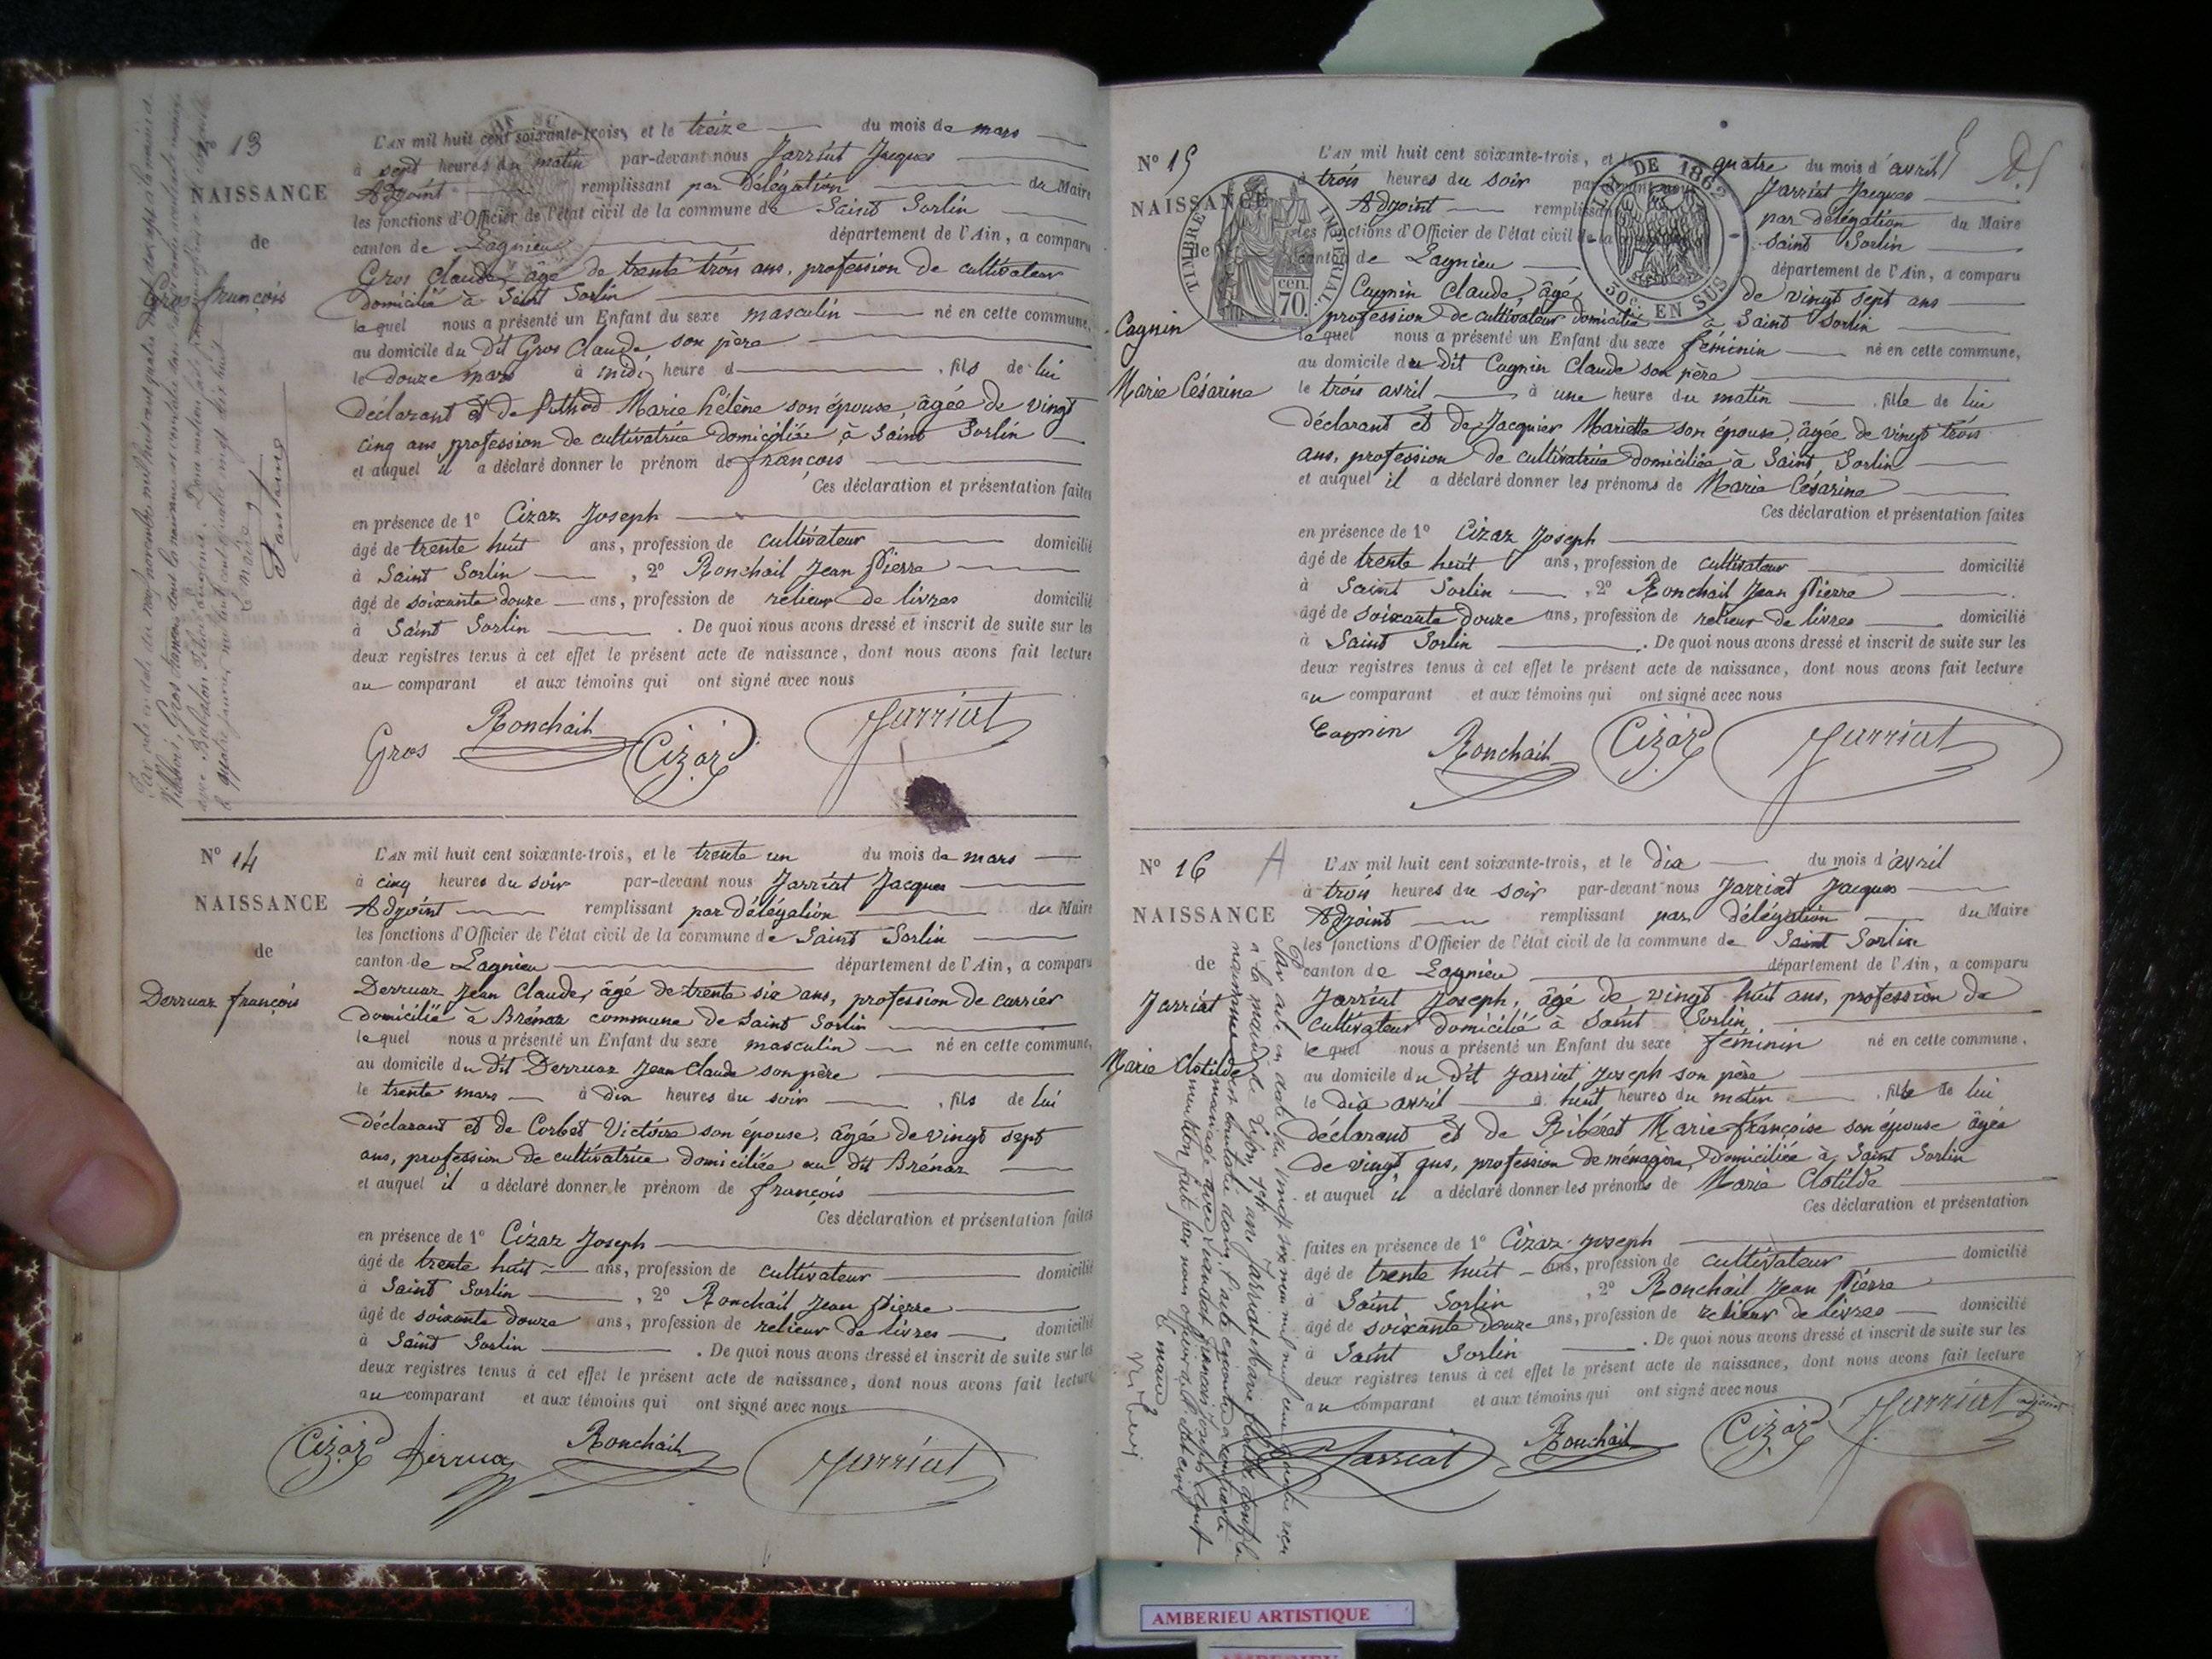 N° 13
NAISSANCE
de
Gros françois
L'AN mil huit cent soixante-trois, et le treize du mois de mars
à sept heures du matin par-devant nous Jarriat Jacques
Adjoint remplissant par délégation du Maire
les fonctions d'Officier de l'état civil de la commune de Saint Sorlin
canton de Lagnieu département de l'Ain, a comparu
Gros Claude, âgé de trente trois ans, profession de cultivateur
domicilié à Saint Sorlin
lequel nous a présenté un Enfant du sexe masculin né en cette commune,
au domicile du dit Gros Claude son père
le douze mars à midi heure d , fils de lui
déclarant et de Marie hélène son épouse, âgée de vingt
cinq ans, profession de cultivatrice domiciliée à Saint Sorlin
et auquel il a déclaré donner le prénom de françois
Ces déclaration et présentation faites
en présence de 1° Cizar Joseph
âgé de trente huit ans, profession de cultivateur domicilié
à Saint Sorlin , 2° Ronchail Jean Pierre
âgé de soixante douze ans, profession de relieur de livres domicilié
à Saint Sorlin . De quoi nous avons dressé et inscrit de suite sur les
deux registres tenus à cet effet le présent acte de naissance, dont nous avons fait lecture
au comparant et aux témoins qui ont signé avec nous
Gros Ronchail Cizar Jarriat
N° 14
NAISSANCE
de
Derruaz françois
L'AN mil huit cent soixante-trois, et le trente un du mois de mars
à cinq heures du soir par-devant nous Jarriat Jacques
Adjoint remplissant par délégation du Maire
les fonctions d'Officier de l'état civil de la commune de Saint Sorlin
canton de Lagnieu département de l'Ain, a comparu
Derruaz Jean Claude, âgé de trente six ans, profession de carrier
domicilié à Brénaz commune de Saint Sorlin
lequel nous a présenté un Enfant du sexe masculin né en cette commune,
au domicile du dit Derruaz Jean Claude son père
le trente mars à dix heures du soir , fils de lui
déclarant et de Corbet Victoire son épouse, âgée de vingt sept
ans, profession de cultivatrice domiciliée au dit Brénaz
et auquel il a déclaré donner le prénom de françois
Ces déclaration et présentation faites
en présence de 1° Cizar Joseph
âgé de trente huit ans, profession de cultivateur domicilié
à Saint Sorlin , 2° Ronchail Jean Pierre
âgé de soixante douze ans, profession de relieur de livres domicilié
à Saint Sorlin . De quoi nous avons dressé et inscrit de suite sur les
deux registres tenus à cet effet le présent acte de naissance, dont nous avons fait lecture
au comparant et aux témoins qui ont signé avec nous
Cizar Derruaz Ronchail Jarriat
N° 15
NAISSANCE
de
Cagnin
Marie Césarine
TIMBRE IMPERIAL
cen. 70.
LOI DE 1862
50c. EN SUS
L'AN mil huit cent soixante-trois, et le quatre du mois d'avril
à trois heures du soir par-devant nous Jarriat Jacques
Adjoint remplissant par délégation du Maire
les fonctions d'Officier de l'état civil de la commune Saint Sorlin
canton de Lagnieu département de l'Ain, a comparu
Cagnin Claude, âgé de vingt sept ans
profession de cultivateur domicilié à Saint Sorlin
lequel nous a présenté un Enfant du sexe féminin né en cette commune,
au domicile du dit Cagnin Claude son père
le trois avril à une heure du matin , fille de lui
déclarant et de Jacquier Mariette son épouse, âgée de vingt trois
ans, profession de cultivatrice domiciliée à Saint Sorlin
et auquel il a déclaré donner les prénoms de Marie Césarine
Ces déclaration et présentation faites
en présence de 1° Cizar Joseph
âgé de trente huit ans, profession de cultivateur domicilié
à Saint Sorlin , 2° Ronchail Jean Pierre
âgé de soixante douze ans, profession de relieur de livres domicilié
à Saint Sorlin . De quoi nous avons dressé et inscrit de suite sur les
deux registres tenus à cet effet le présent acte de naissance, dont nous avons fait lecture
au comparant et aux témoins qui ont signé avec nous
Cagnin Ronchail Cizar Jarriat
N° 16
NAISSANCE
de
Jarriat
Marie Clotilde
L'AN mil huit cent soixante-trois, et le dix du mois d'avril
à trois heures du soir par-devant nous Jarriat Jacques
Adjoint remplissant par délégation du Maire
les fonctions d'Officier de l'état civil de la commune de Saint Sorlin
canton de Lagnieu département de l'Ain, a comparu
Jarriat Joseph, âgé de vingt huit ans, profession de
cultivateur domicilié à Saint Sorlin
lequel nous a présenté un Enfant du sexe féminin né en cette commune,
au domicile du dit Jarriat Joseph son père
le dix avril à huit heures du matin , fille de lui
déclarant et de Ribérat Marie françoise son épouse âgée
de vingt ans, profession de ménagère, domiciliée à Saint Sorlin
et auquel il a déclaré donner les prénoms de Marie Clotilde
Ces déclaration et présentation
faites en présence de 1° Cizar Joseph
âgé de trente huit ans, profession de cultivateur domicilié
à Saint Sorlin , 2° Ronchail Jean Pierre
âgé de soixante douze ans, profession de relieur de livres domicilié
à Saint Sorlin . De quoi nous avons dressé et inscrit de suite sur les
deux registres tenus à cet effet le présent acte de naissance, dont nous avons fait lecture
au comparant et aux témoins qui ont signé avec nous
Jarriat Ronchail Cizar Jarriat adjoint
AMBERIEU ARTISTIQUE